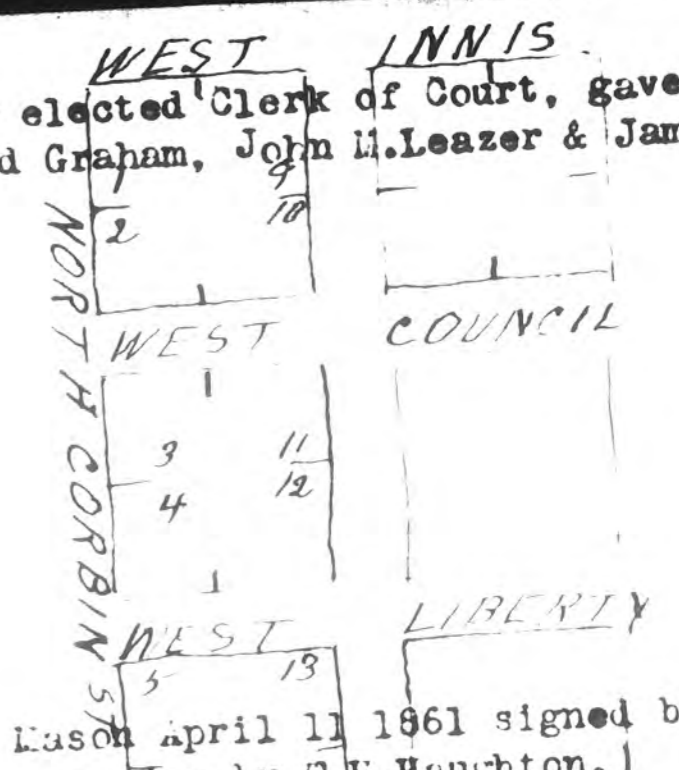 WEST INNIS
elected Clerk of Court, gave
d Graham, John M.Leazer & Jam
1 9
2 10
NORTH CORBIN ST
WEST COUNCIL
3 11
4 12
WEST LIBERTY
5 13
Mason April 11 1861 signed b
Houghton.